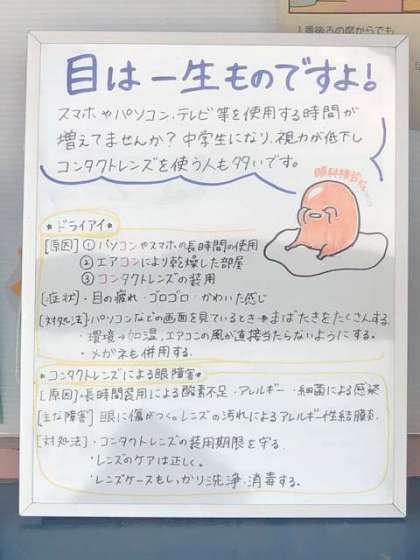 1番後ろの席からでも
目は一生ものですよ!
スマホやパソコン、テレビ等を使用する時間が
増えてませんか?中学生になり、視力が低下し
コンタクトレンズを使う人も多いです。
眼科検診
*ドライアイ*
[原因]①パソコンやスマホの長時間の使用
②エアコンにより乾燥した部屋
③コンタクトレンズの装用
[症状]・目の疲れ・ゴロゴロ・かわいた感じ
[対処法]パソコンなどの画面を見ているとき→まばたきをたくさんする
・環境→加温,エアコンの風が直接当たらないようにする。
・メガネも併用する.
*コンタクトレンズによる眼障害*
[原因]・長時間装用による酸素不足・アレルギー・細菌による感染
[主な障害]眼に傷がつく。レンズの汚れによるアレルギー性結膜炎
[対処法]・コンタクトレンズの装用期限を守る
・レンズのケアは正しく。
・レンズケースもしっかり洗浄・消毒する.